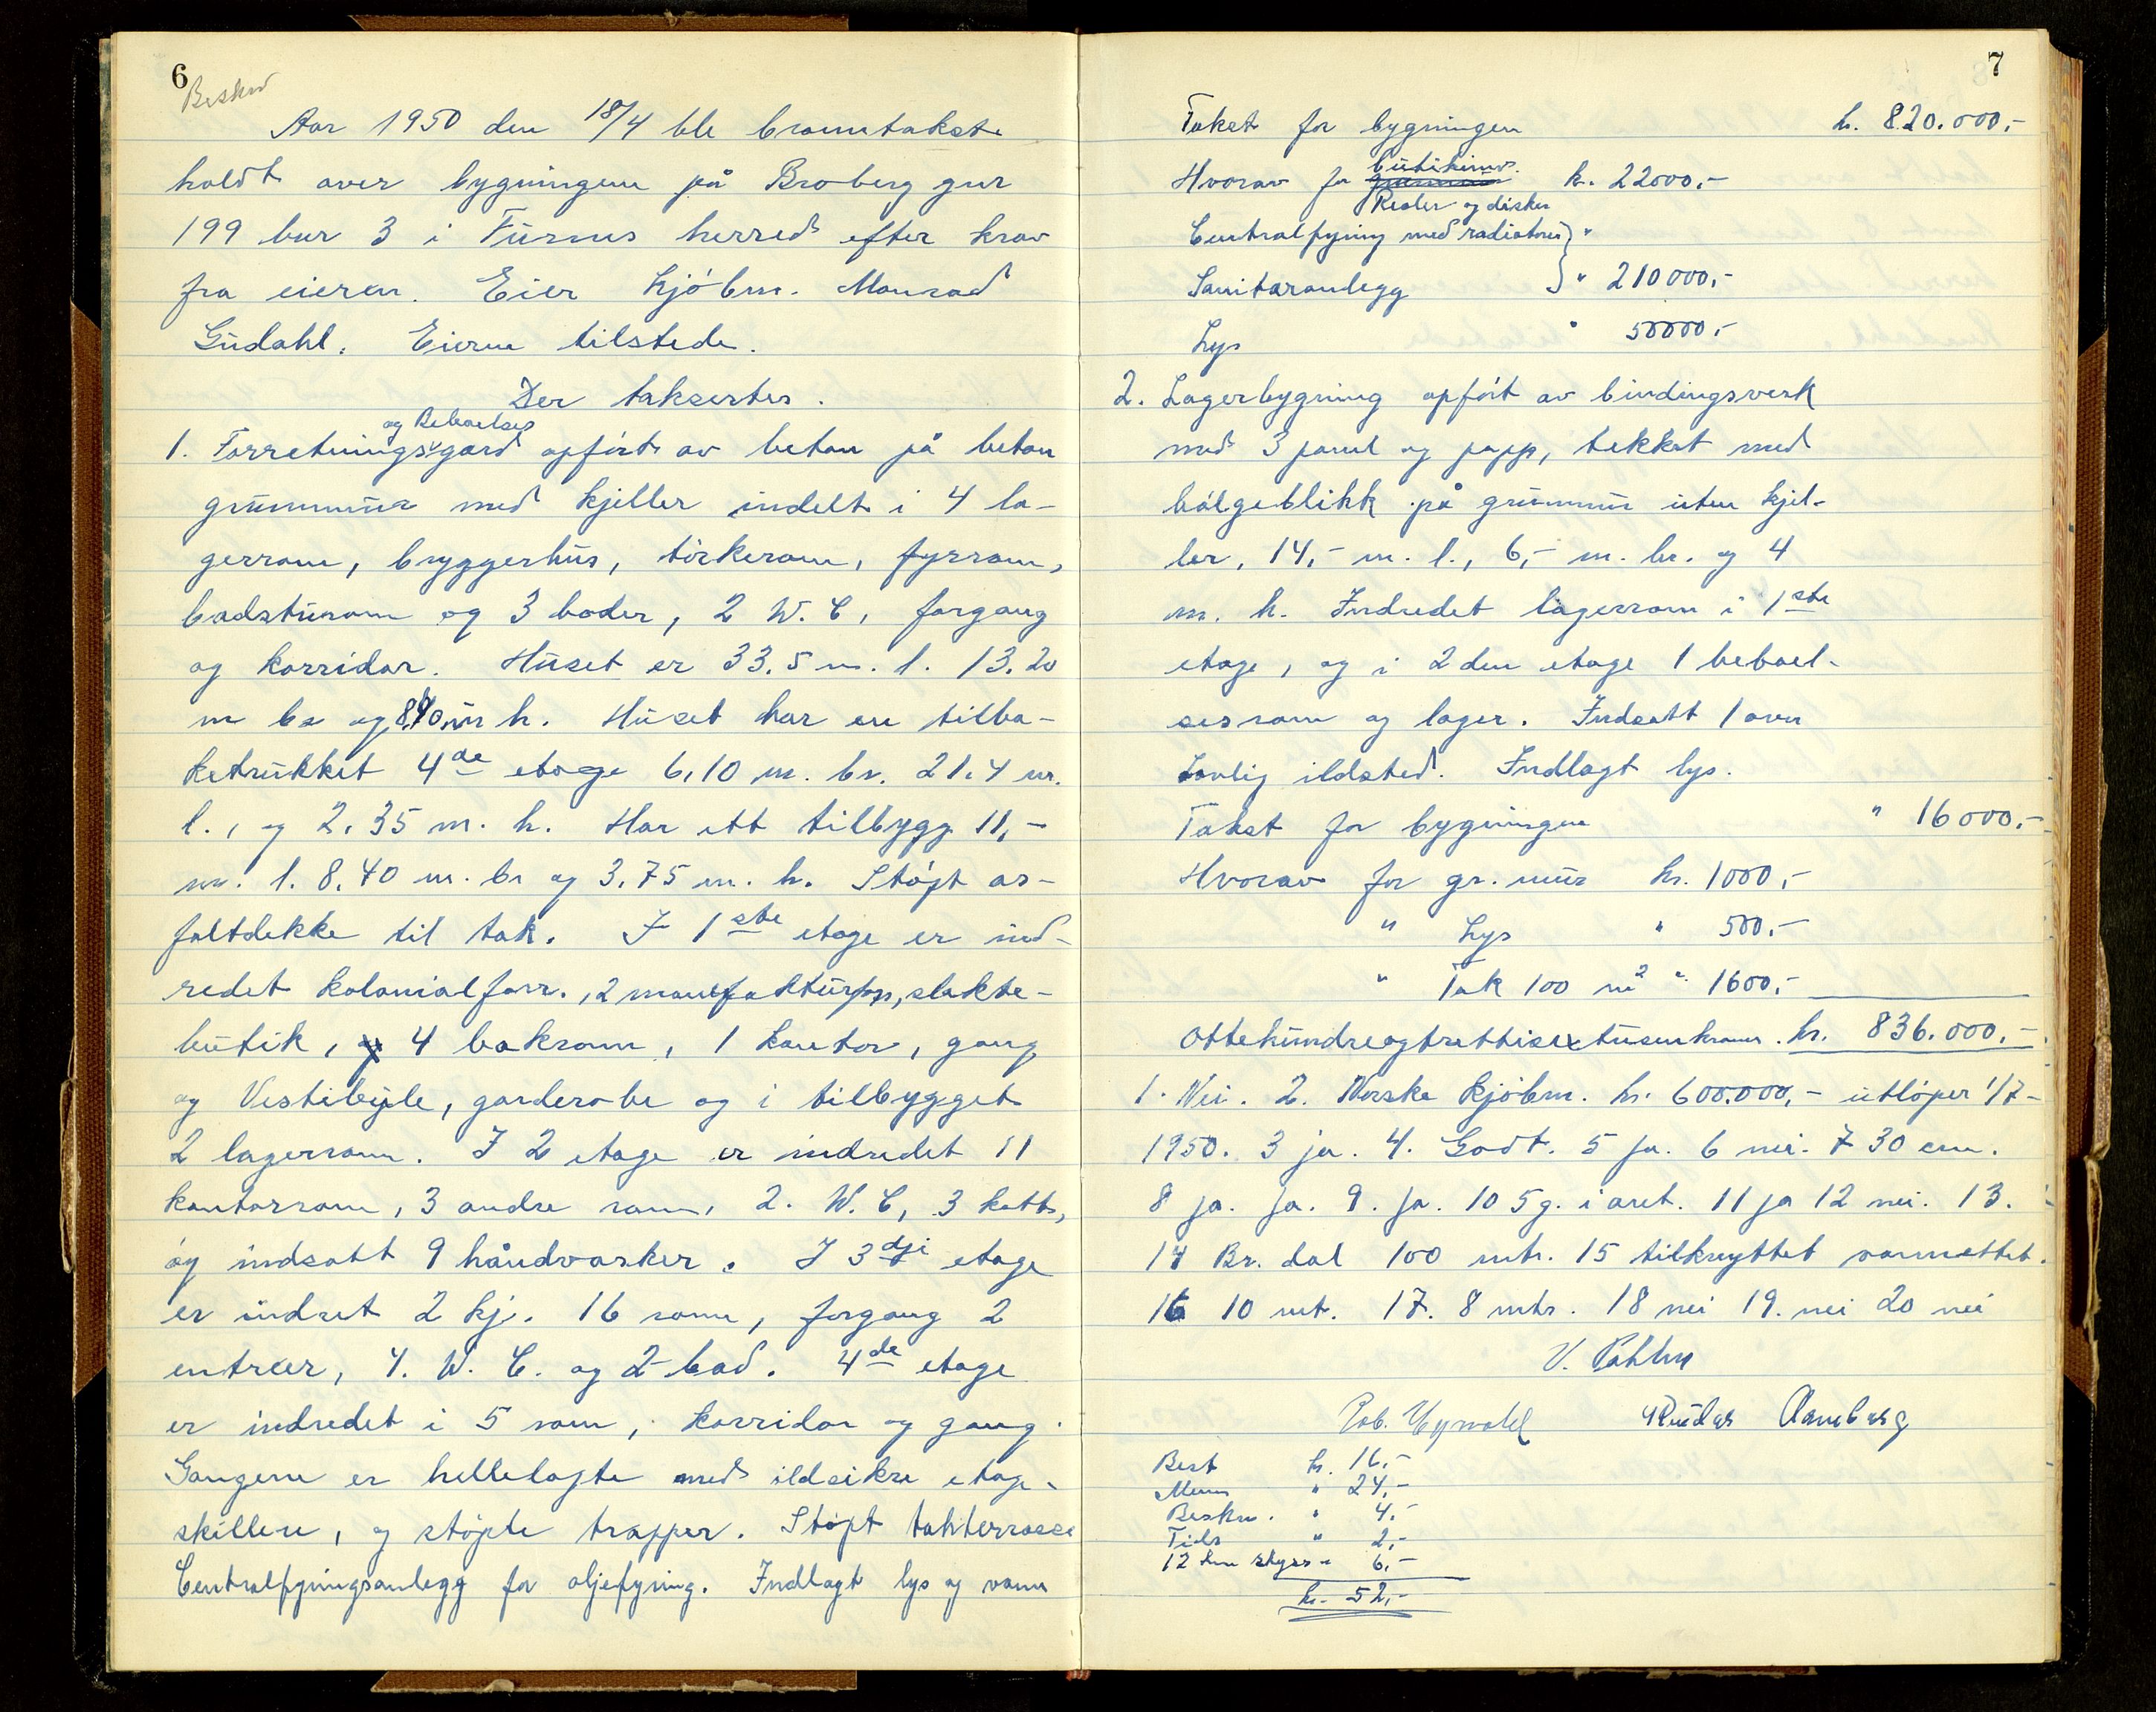 6
Beskrev
Aar 1950 den 18/4 ble branntakst
holdt over bygningene på Broberg gnr
199 bnr 3 i Furnes herred efter krav
fra eieren. Eier Kjöbm. Monrad
Gudahl. Eieren tilstede.
Der takserter.
og Beboelses
1. Forretningsgard opfört av beton på beton
grunnmur med kjeller indelt i 4 la-
gerrom, bryggerhus, törkerom, fyrrom,
badsturom og 3 boder, 2 W. C, forgang
og korridor. Huset er 33.5 m. l. 13.20
m br og 8,40 m h. Huset har en tilba-
ketrukket 4de etage 6,10 m. br. 21.4 m.
l., og 2.35 m. h. Har ett tilbygg 11,-
m. l. 8.40 m. br og 3.75 m. h. Stöpt as-
faltdekke til tak. I 1ste etage er ind-
redet kolonialforr., 2 manufakturforr, slakte-
butik, 4 bakrom, 1 kontor, gang
og Vestibyle, garderobe og i tilbygget
2 lagerrom. I 2 etage er indredet 11
kontorrom, 3 andre rom, 2. W. C, 3 kott,
og indsatt 9 håndvasker. I 3dje etage
er indret 2 kj. 16 rom, forgang 2
entreer, 4. W. C. og 2 bad. 4de etage
er indredet i 5 rom, korridor og gang.
Gangene er hellelagte med ildsikre etage-
skillere, og stöpte trapper. Stöpt takterrasse
Centralfyringsanlegg for oljefyring. Indlagt lys og vann
7
Takst for bygningen kr. 820.000,-
Hvorav for butikinv. kr. 22000,-
Reoler og disker
Centralfyring med radiatorer } "
Sanitæranlegg } " 210000,-
Lys " 50000,-
2. Lagerbygning opfört av bindingsverk
med 3 panel og papp, tekket med
bölgeblikk på grunmur uten kjel-
ler, 14,- m. l., 6,- m. br. og 4
m. h. Indredet lagerrom i 1ste
etage, og i 2den etage 1 beboel-
sesrom og lager. Indsatt 1 ovn
Lovlig ildsted. Indlagt lys.
Takst for bygningen " 16000,-
Hvorav for gr. mur kr. 1000,-
" Lys " 500,-
" Tak 100 m2 " 1600,-
Ottehundreogtrettisextusenkroner. kr. 836.000,-
1. Nei. 2. Norske Kjöbm. kr. 600.000,- utlöper 1/7-
1950. 3 ja. 4. Godt. 5 ja. 6 nei. 7 30 cm.
8 ja. ja. 9. ja. 10 5 g. i aret. 11 ja 12 nei. 13.
14 Br. dal 100 mtr. 15 tilknyttet vannettet.
16 10 mt. 17. 8 mtr. 18 nei 19. nei 20 nei
Best kr. 16,-
Menn " 24,-
Beskr. " 4,-
Tids " 2,-
12 km skyss " 6,-
kr. 52,-